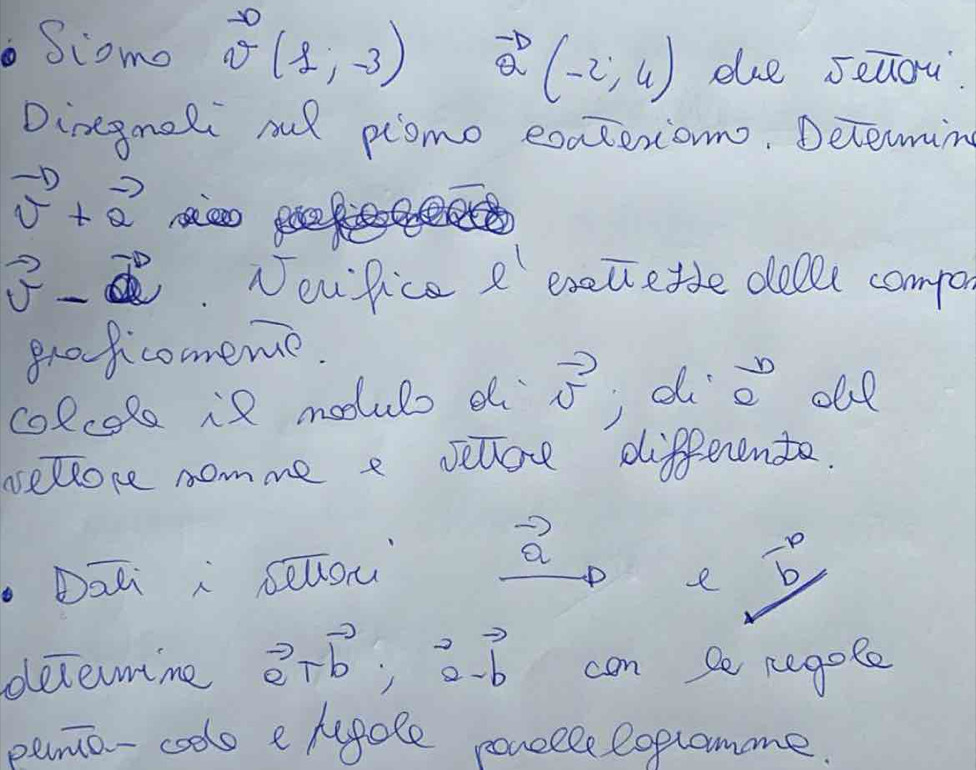 • Siano v⃗ (1; -3) a⃗ (-2; 4) due vettori.
Disegnali sul piano cartesiano. Determin
v⃗ + a⃗
v⃗ - a⃗. Verifica l'esattezza delle compon
graficamente.
Calcola il modulo di v⃗; di a⃗ del
vettore somma e vettore differenza.
• Dati i vettori a⃗ e b⃗
determina a⃗+b⃗; a⃗-b⃗ con la regola
punta-coda e regola parallelogramma.